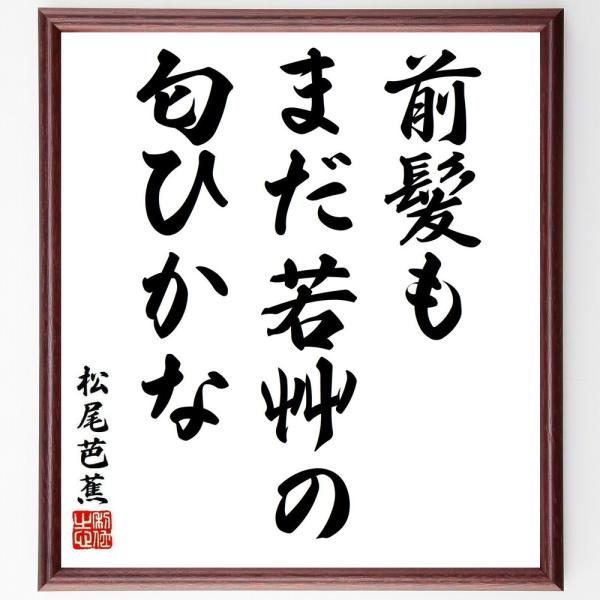 前髪も
まだ若艸の
匂ひかな
松尾芭蕉